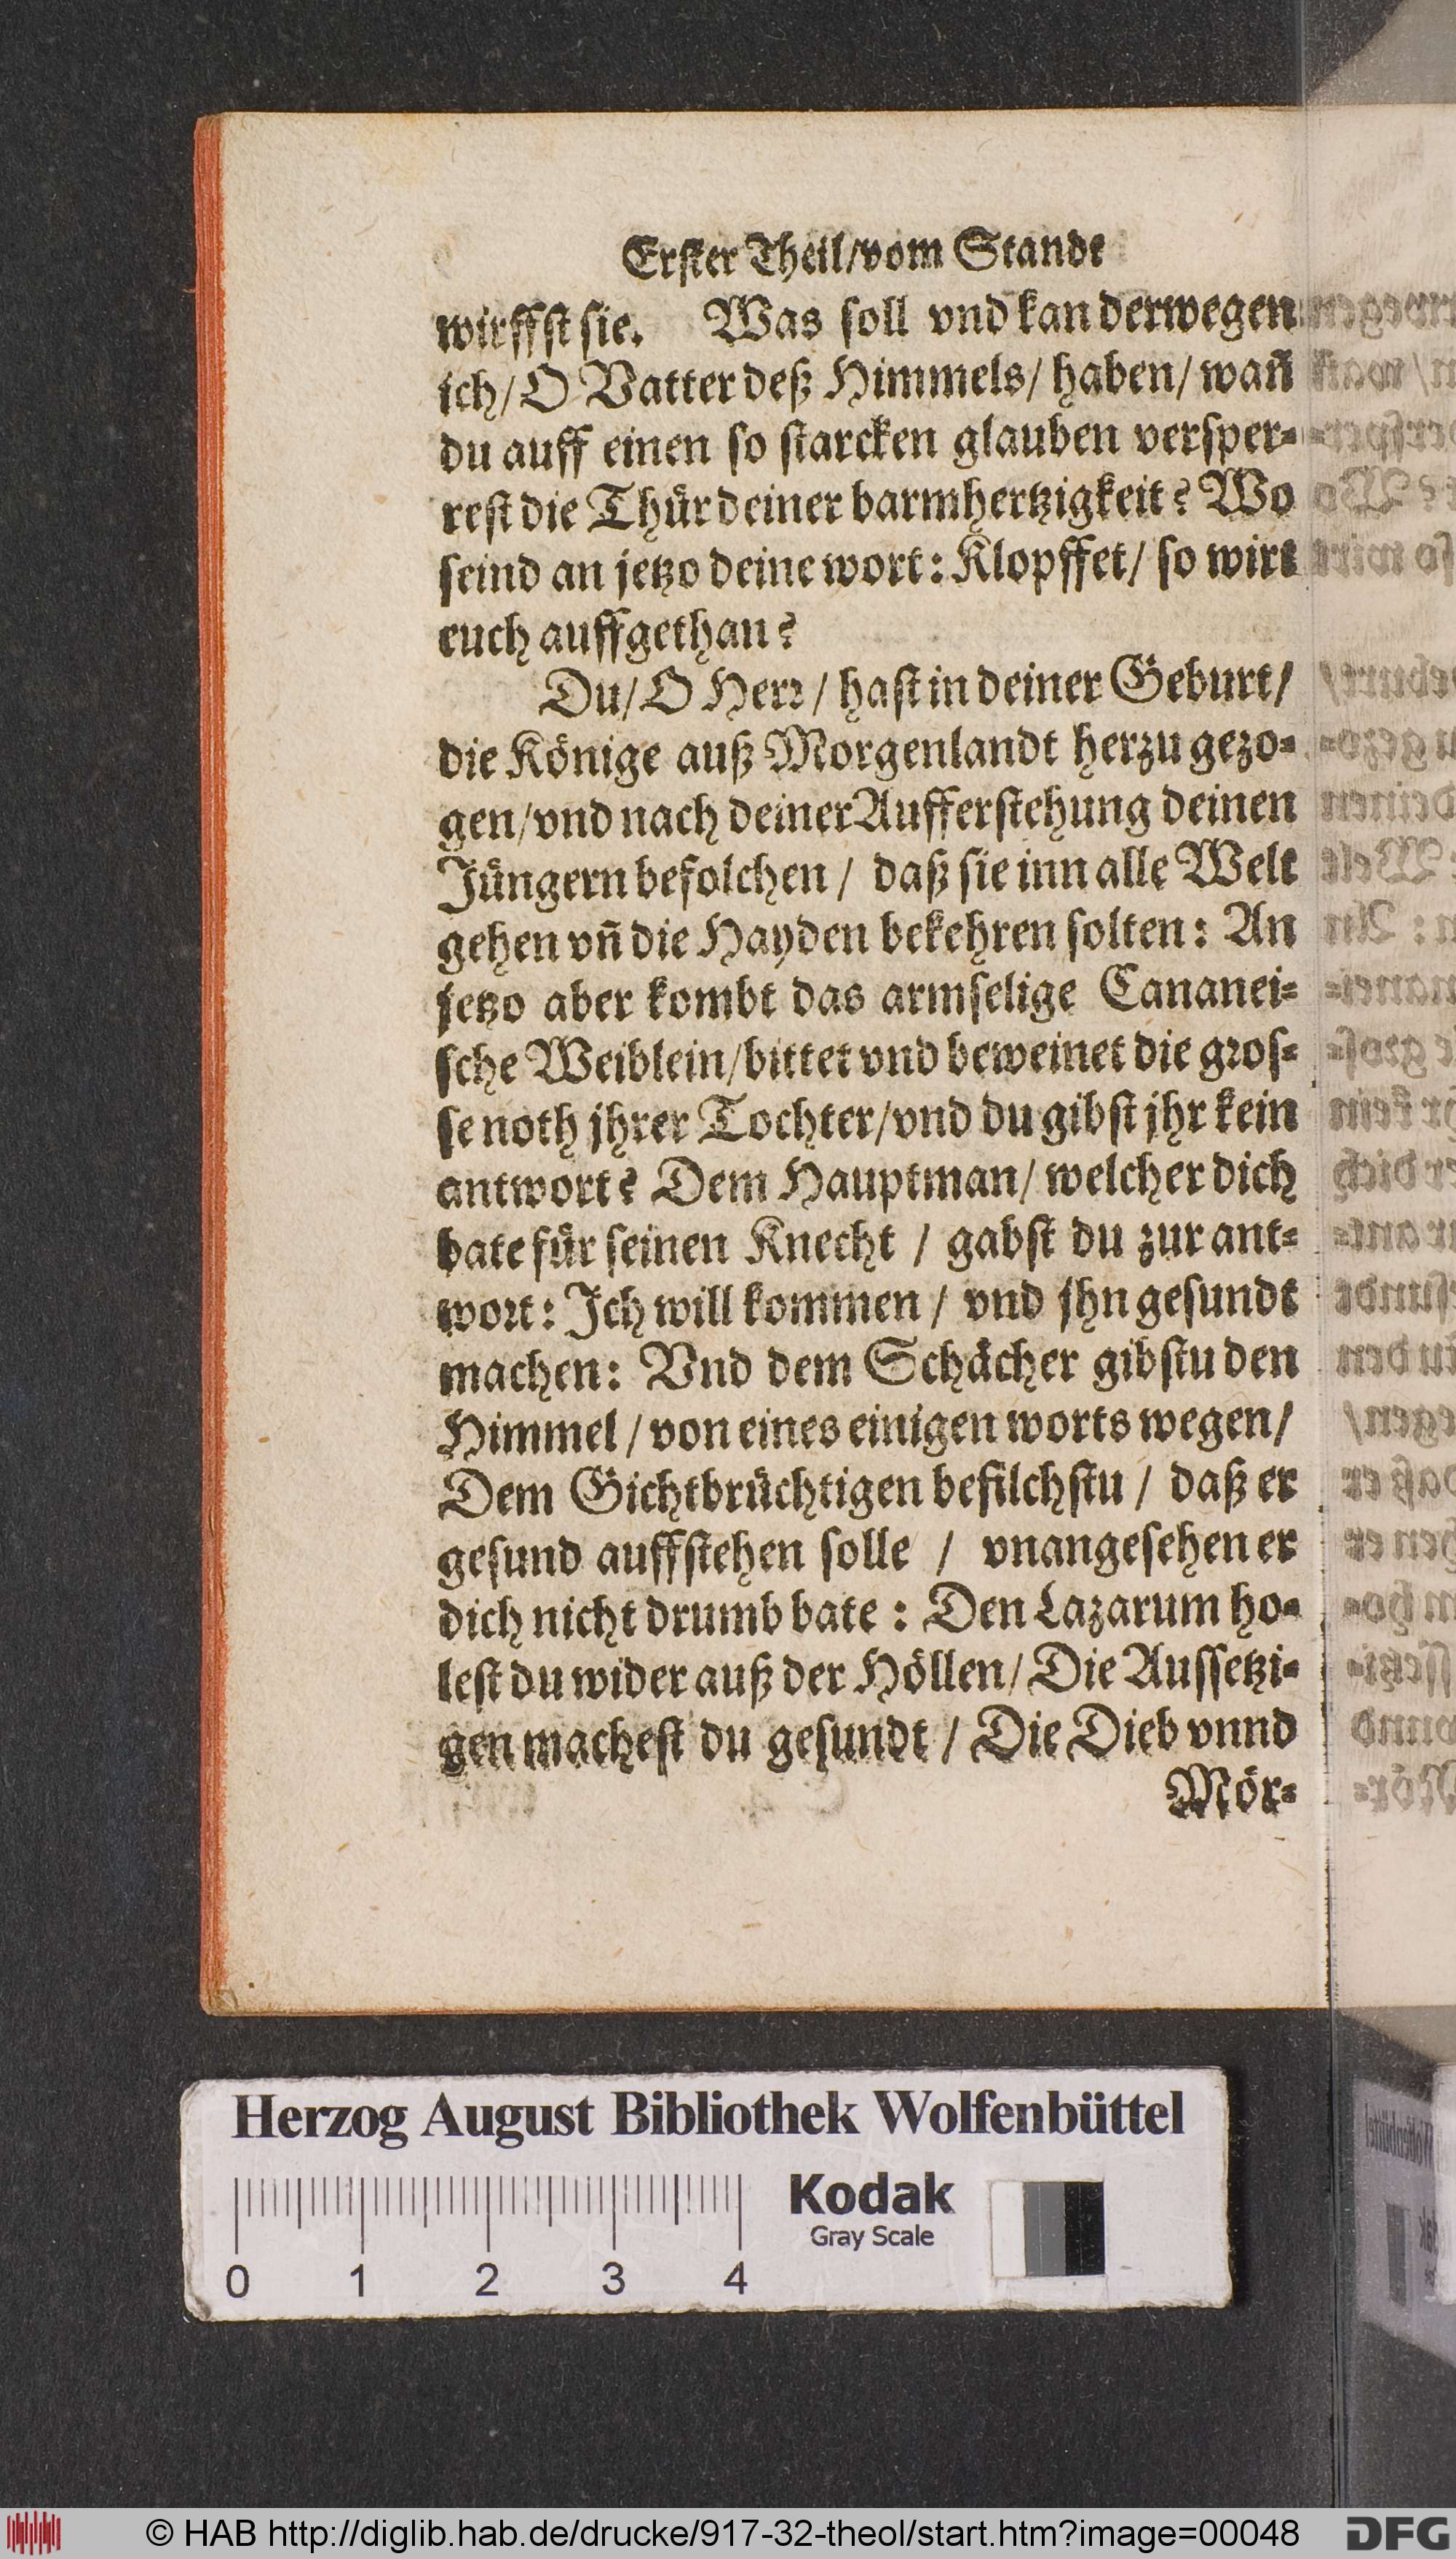 Erſter Theil/vom Standt
wirffſt ſie. Was ſoll vnd kan derwegen
ich/ O Vatter deß Himmels/ haben/ wañ
du auff einen ſo ſtarcken glauben verſper-
reſt die Thür deiner barmhertzigkeit? Wo
ſeind an jetzo deine wort: Klopffet/ ſo wirt
euch auffgethan?
Du/ O Herꝛ / haſt in deiner Geburt/
die Könige auß Morgenlandt herzu gezo-
gen/vnd nach deiner Aufferſtehung deinen
Jüngern befolchen / daß ſie inn alle Welt
gehen vñ die Hayden bekehren ſolten: An
jetzo aber kombt das armſelige Cananei-
ſche Weiblein/bittet vnd beweinet die groſ-
ſe noth jhrer Tochter/vnd du gibſt jhr kein
antwort? Dem Hauptman/ welcher dich
bate für ſeinen Knecht / gabſt du zur ant-
woꝛt: Ich will kommen / vnd jhn geſundt
machen: Vnd dem Schächer gibſtu den
Himmel / von eines einigen worts wegen/
Dem Gichtbrüchtigen befilchſtu / daß er
geſund auffſtehen ſolle / vnangeſehen er
dich nicht drumb bate : Den Lazarum ho-
leſt du wider auß der Höllen/ Die Auſſetzi-
gen macheſt du geſundt / Die Dieb vnnd
Mör-
Herzog August Bibliothek Wolfenbüttel
Kodak
Gray Scale
0 1 2 3 4
© HAB http://diglib.hab.de/drucke/917-32-theol/start.htm?image=00048
DFG